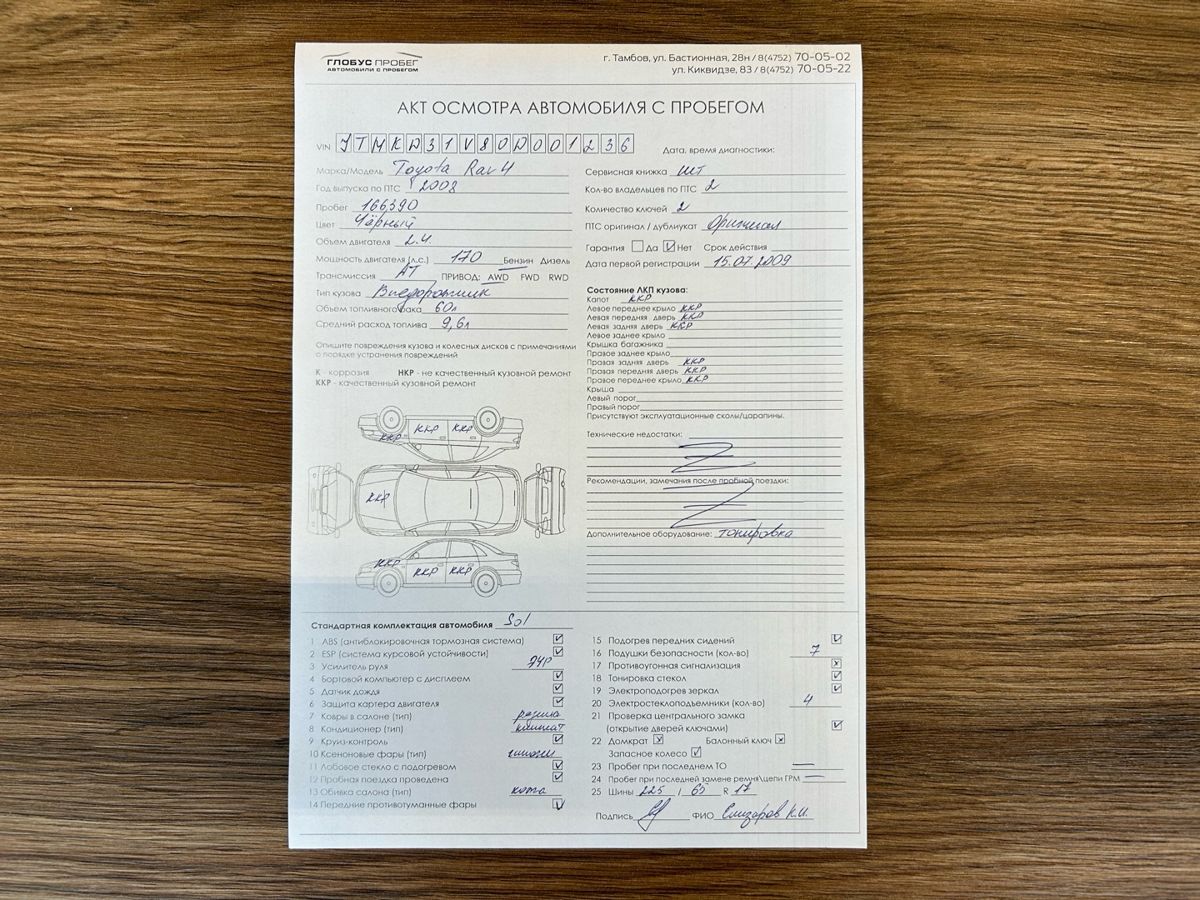 ГЛОБУС ПРОБЕГ
АВТОМОБИЛИ С ПРОБЕГОМ
г. Тамбов, ул. Бастионная, 28н / 8(4752) 70-05-02
ул. Киквидзе, 83 / 8(4752) 70-05-22
АКТ ОСМОТРА АВТОМОБИЛЯ С ПРОБЕГОМ
VIN JTMKD31V80D001236
Дата, время диагностики:
Марка/Модель Toyota Rav 4
Год выпуска по ПТС 2008
Пробег 166390
Цвет Чёрный
Объем двигателя 2.4
Мощность двигателя (л.с.) 170 Бензин Дизель
Трансмиссия АТ ПРИВОД: AWD FWD RWD
Тип кузова Внедорожник
Объем топливного бака 60л
Средний расход топлива 9,6л
Опишите повреждения кузова и колесных дисков с примечаниями
о порядке устранения повреждений
К - коррозия НКР - не качественный кузовной ремонт
ККР - качественный кузовной ремонт
ККР ККР ККР
ККР
ККР ККР ККР
Сервисная книжка
Кол-во владельцев по ПТС 2
Количество ключей 2
ПТС оригинал / дубликат Оригинал
Гарантия Да Нет Срок действия
Дата первой регистрации 15.07.2009
Состояние ЛКП кузова:
Капот ККР
Левое переднее крыло ККР
Левая передняя дверь ККР
Левая задняя дверь ККР
Левое заднее крыло
Крышка багажника
Правое заднее крыло
Правая задняя дверь ККР
Правая передняя дверь ККР
Правое переднее крыло ККР
Крыша
Левый порог
Правый порог
Присутствуют эксплуатационные сколы/царапины.
Технические недостатки:
Рекомендации, замечания после пробной поездки:
Дополнительное оборудование: тонировка
Стандартная комплектация автомобиля Sol
1 ABS (антиблокировочная тормозная система)
2 ESP (система курсовой устойчивости)
3 Усилитель руля ЭУР
4 Бортовой компьютер с дисплеем
5 Датчик дождя
6 Защита картера двигателя
7 Ковры в салоне (тип) резина
8 Кондиционер (тип) климат
9 Круиз-контроль
10 Ксеноновые фары (тип)
11 Лобовое стекло с подогревом
12 Пробная поездка проведена
13 Обивка салона (тип) кожа
14 Передние противотуманные фары
15 Подогрев передних сидений
16 Подушки безопасности (кол-во) 7
17 Противоугонная сигнализация
18 Тонировка стекол
19 Электроподогрев зеркал
20 Электростеклоподъемники (кол-во) 4
21 Проверка центрального замка
(открытие дверей ключами)
22 Домкрат Балонный ключ
Запасное колесо
23 Пробег при последнем ТО
24 Пробег при последней замене ремня\цепи ГРМ
25 Шины 225 / 65 R 17
Подпись ФИО Елизаров К.И.